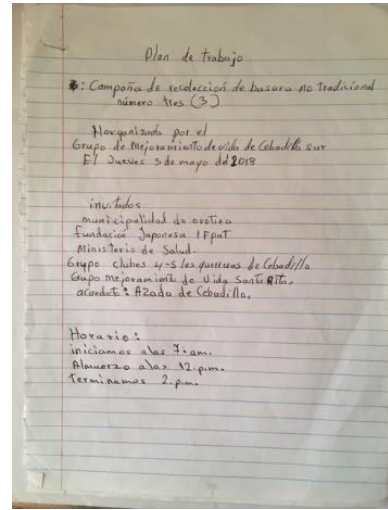 Plan de trabajo
: Campaña de recolección de basura no tradicional
número tres (3)
Horganizada por el
Grupo de Mejoramiento de vida de Cebadilla sur
El Jueves 3 de mayo del 2018
invitados
municipalidad de orotina
fundación Japonesa
Ministerio de Salud.
Grupo clubes 4-s les guerreras de Cebadilla
Grupo mejoramiento de Vida Santa Rita.
acueducto: Azada de Cebadilla.
Horario:
iniciamos a las 7:am.
Almuerzo a las 12.p.m.
Terminamos 2.p.m.